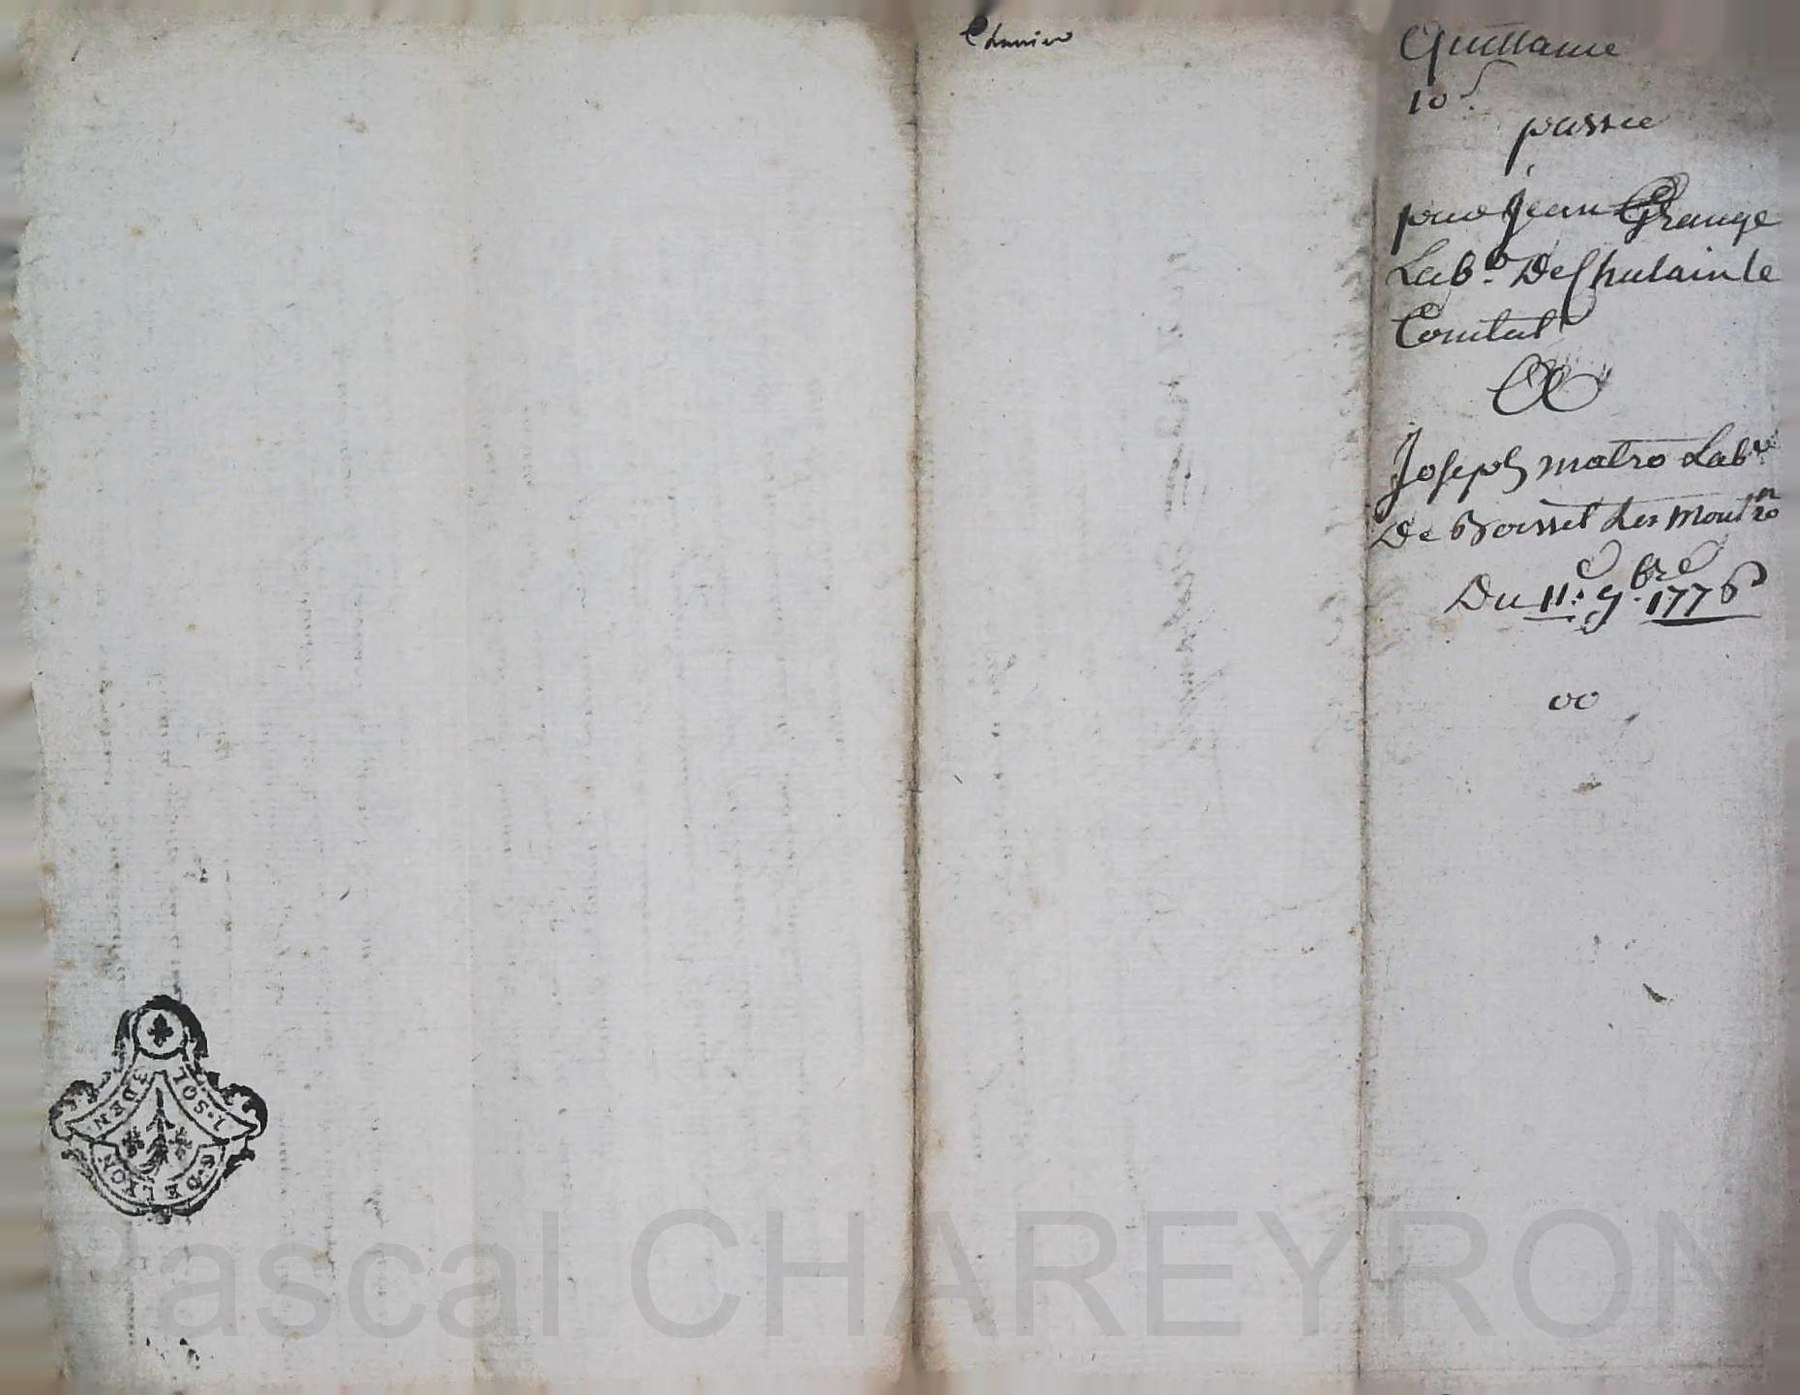 Quittance
10 s.
passée
pour Jean Grange
Lab.r De Chalain le
Comtal
Joseph matro Lab.r
De Boisset Les Mont
Du 11.e 9.bre 1776
oo
1. SOL. 3 DEN
G. DE LYON
Pascal CHAREYRON